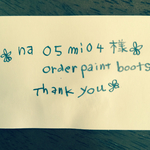 na 05 mi 04 様
order paint boots
thank you